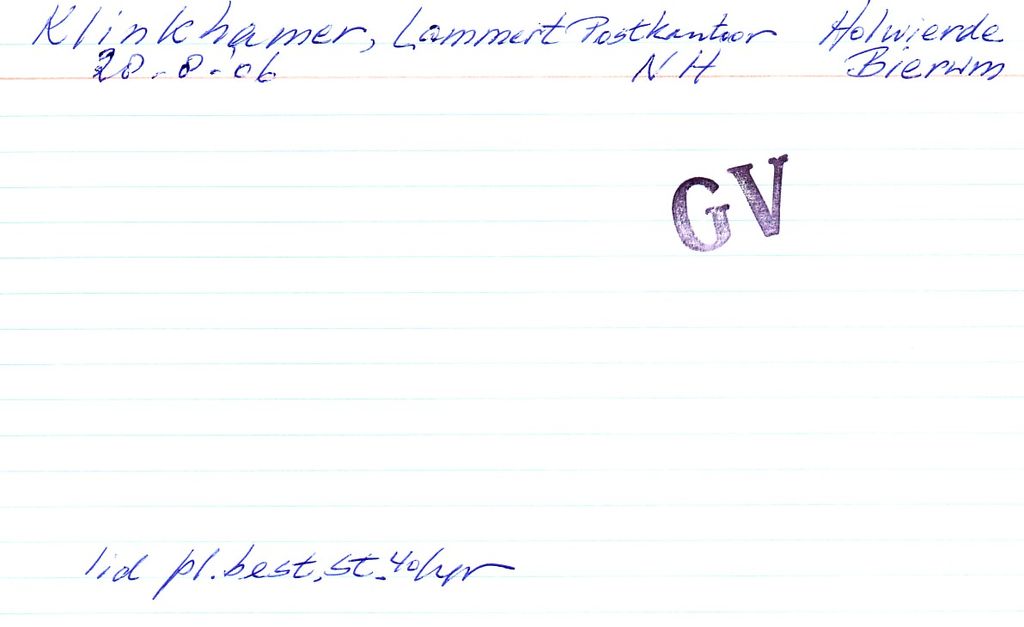 Klinkhamer, Lammert Postkantoor Holwierde
28-8-06 NH Bierum
GV
lid pl.best.st. 40